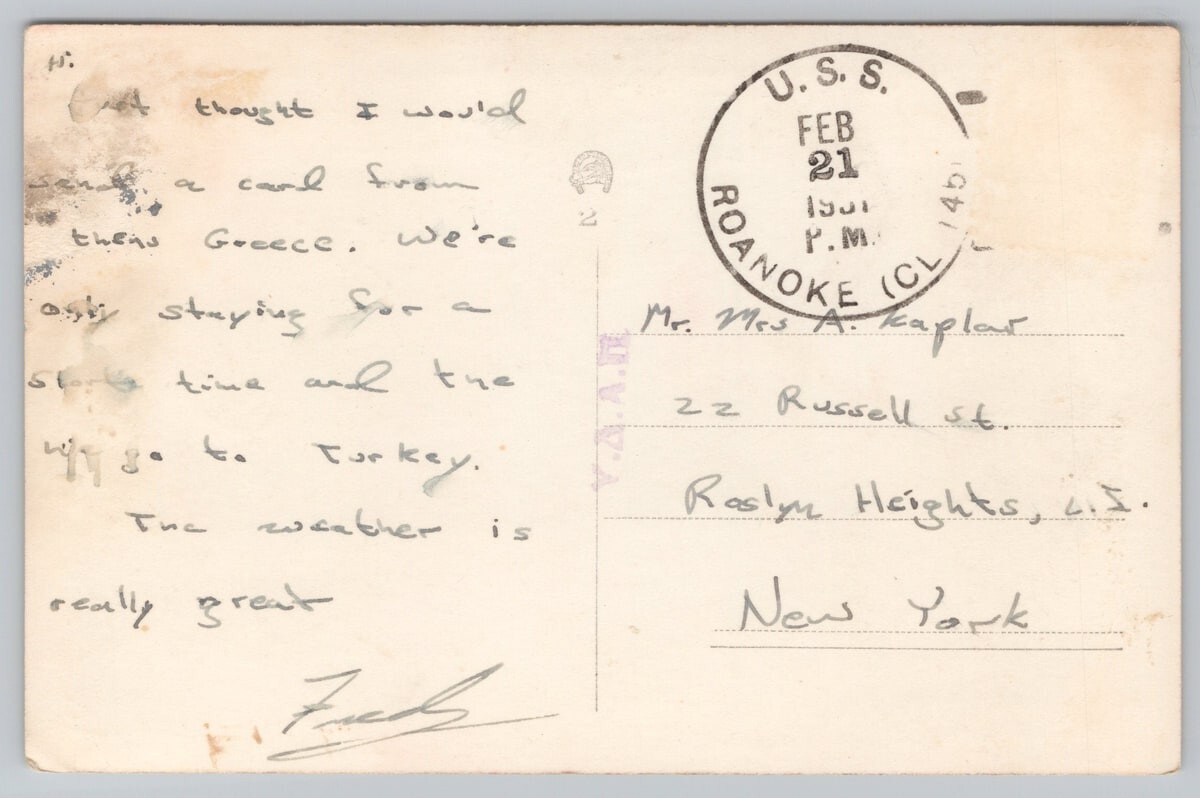 Hi.
Just thought I would
send a card from
thens Greece. We're
only staying for a
short time and the
we go to Turkey.
The weather is
really great
Fred
2
U.S.S.
FEB
21
P.M.
ROANOKE (CL 145
Mr. Mrs A. Kaplan
22 Russell st.
Roslyn Heights, L.I.
New York